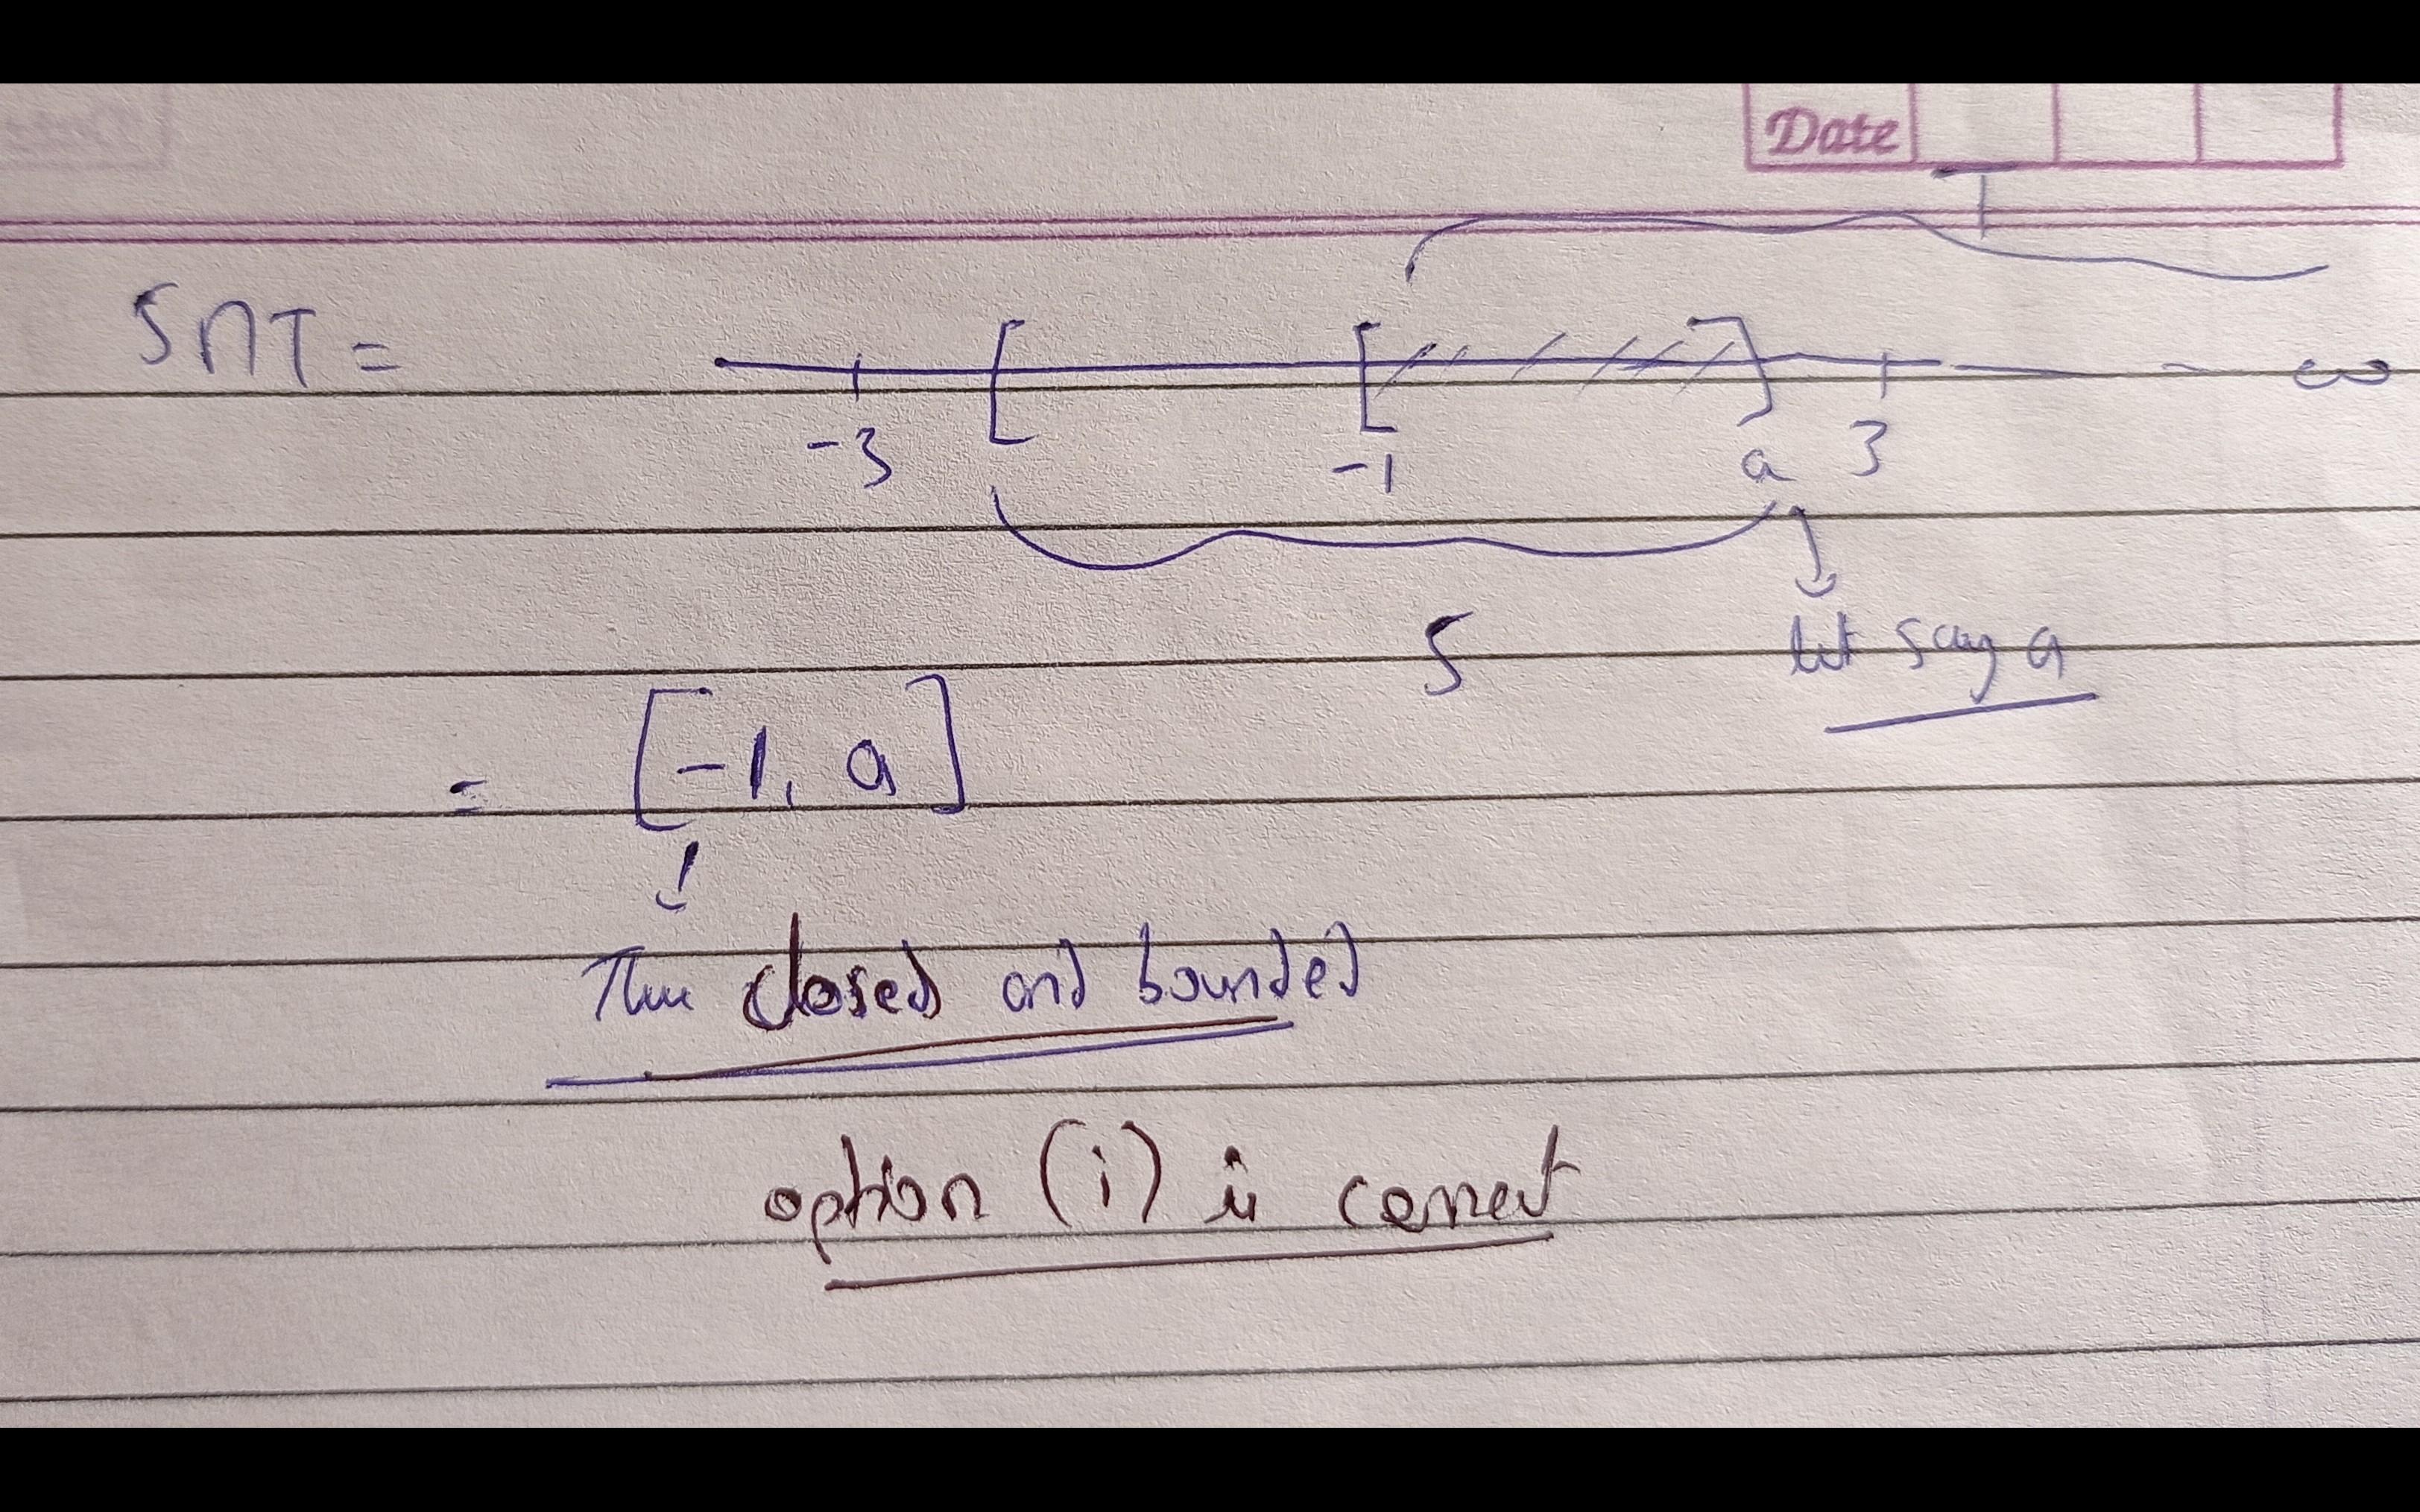 Date
T
S∩T =
-3 -1 a 3 ∞
S
let say a
= [-1, a]
closed and bounded
option (i) is correct